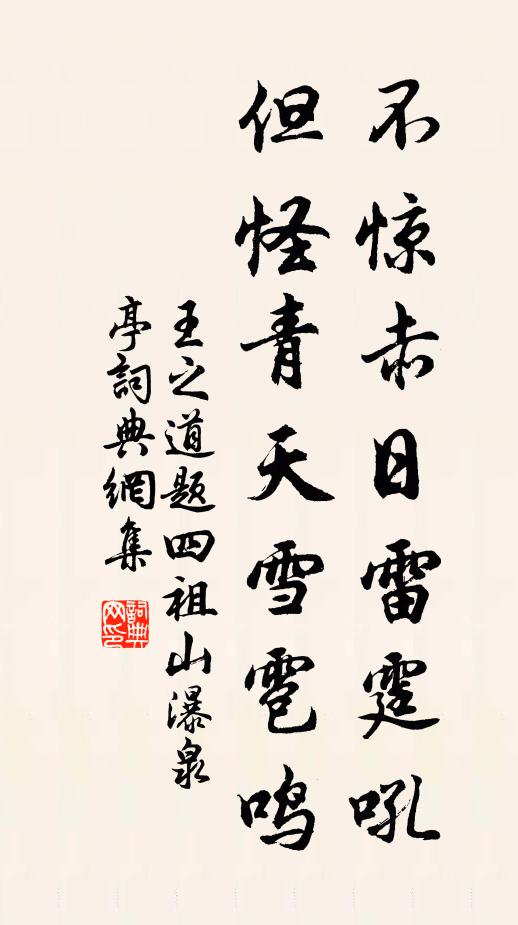 不惊赤日雷霆吼
但怪青天雪雹鸣
王之道题四祖山瀑泉
亭詞典網集
詞典
网印